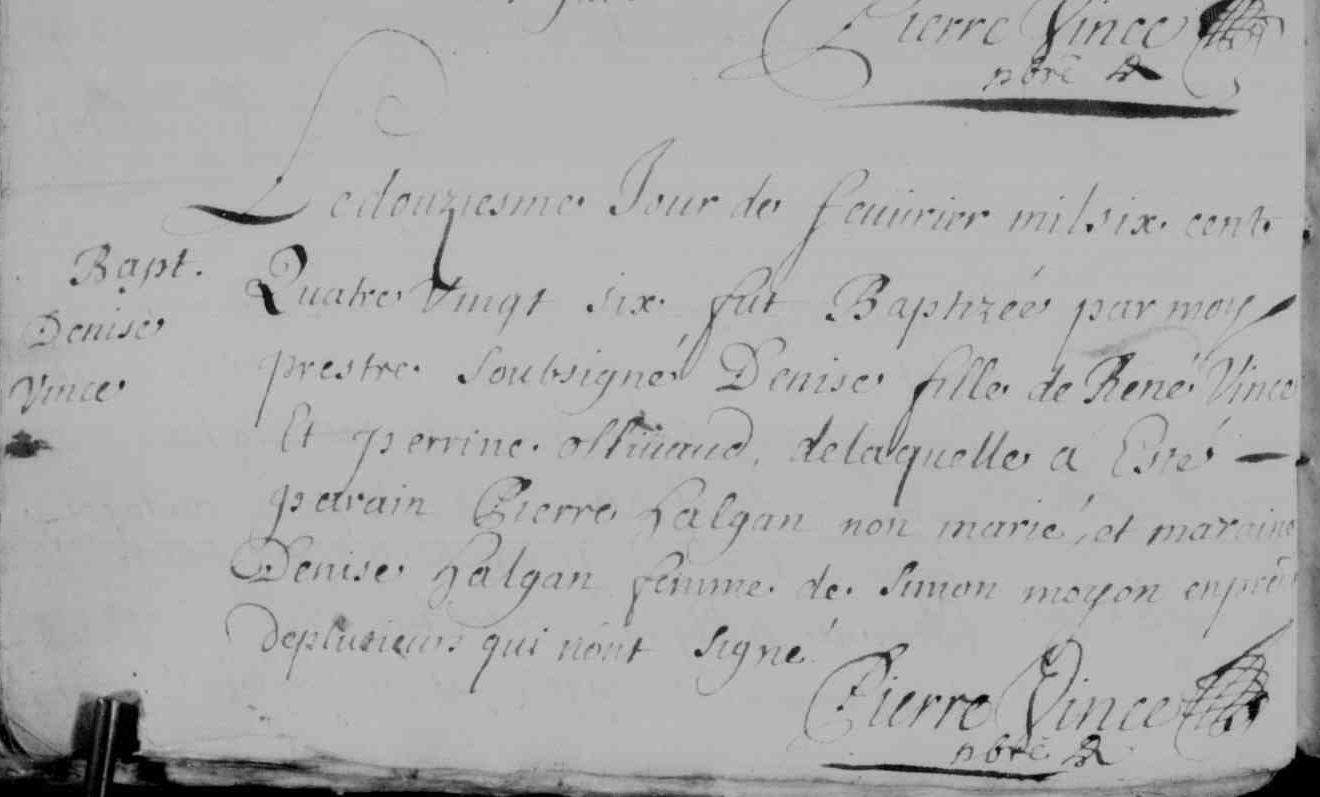 Pierre Vince
pbre
Le douziesme Jour de feuurier mil six cent
Bapt.
Denise
Vince
Quatre Vingt six fut Baptizée par moy
prestre soubsigné Denise fille de René Vince
Et perrine olliuaud, de laquelle a Esté
parain Pierre halgan non marié, et maraine
Denise halgan femme de Simon moyon en prē
de plusieurs qui n'ont signé
Pierre Vince
pbre